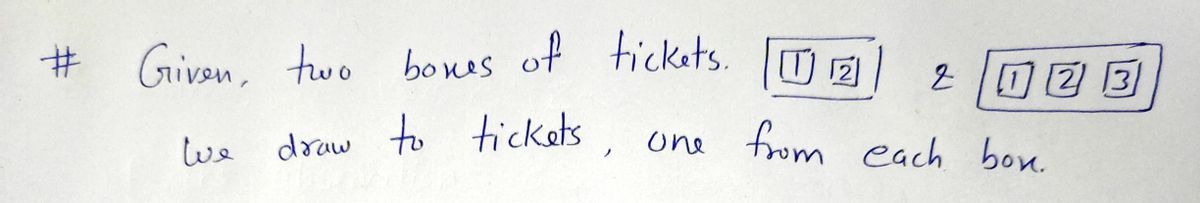 # Given, two boxes of tickets. 1 2 & 1 2 3
We draw to tickets, one from each box.